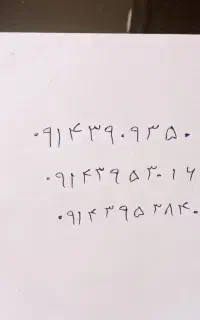 ۰۹۱۴۳۹۰۹۳۵۰
۰۹۱۴۳۹۵۳۰۱۶
۰۹۱۴۳۹۵۳۸۴۰